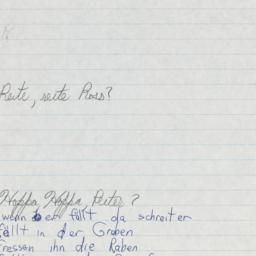 Reite, reite Ross?
Hoppa, Hoppa, Reiter?
wenn er fällt da schreit er
fällt in der Graben
fressen ihn die Raben